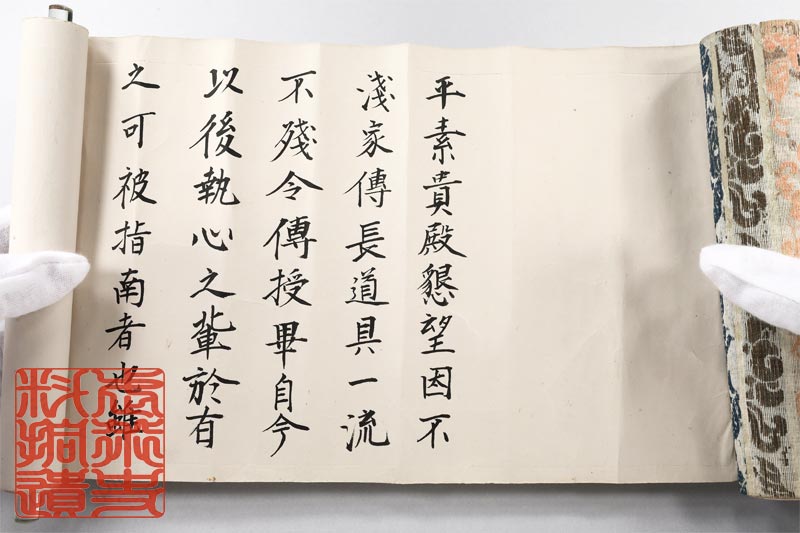 平素貴殿懇望因不
淺家傳長道具一流
不殘令傳授畢自今
以後執心之輩於有
之可被指南者也雖